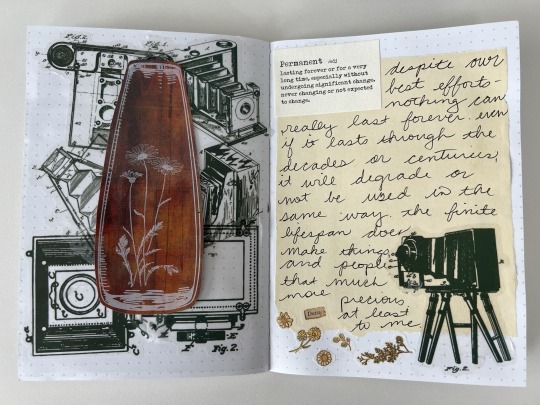 Fig. 2.
Fig. 1.
Fig. 2.
Permanent Adj
lasting forever or for a very
long time, especially without
undergoing significant change.
never changing or not expected
to change.
despite our
best efforts-
nothing can
really last forever. even
if to lasts through the
decades or centuries,
it will degrade or
not be used in the
same way. the finite
lifespan does
make things
and people
that much
more precious
at least
to me
Fig. 2